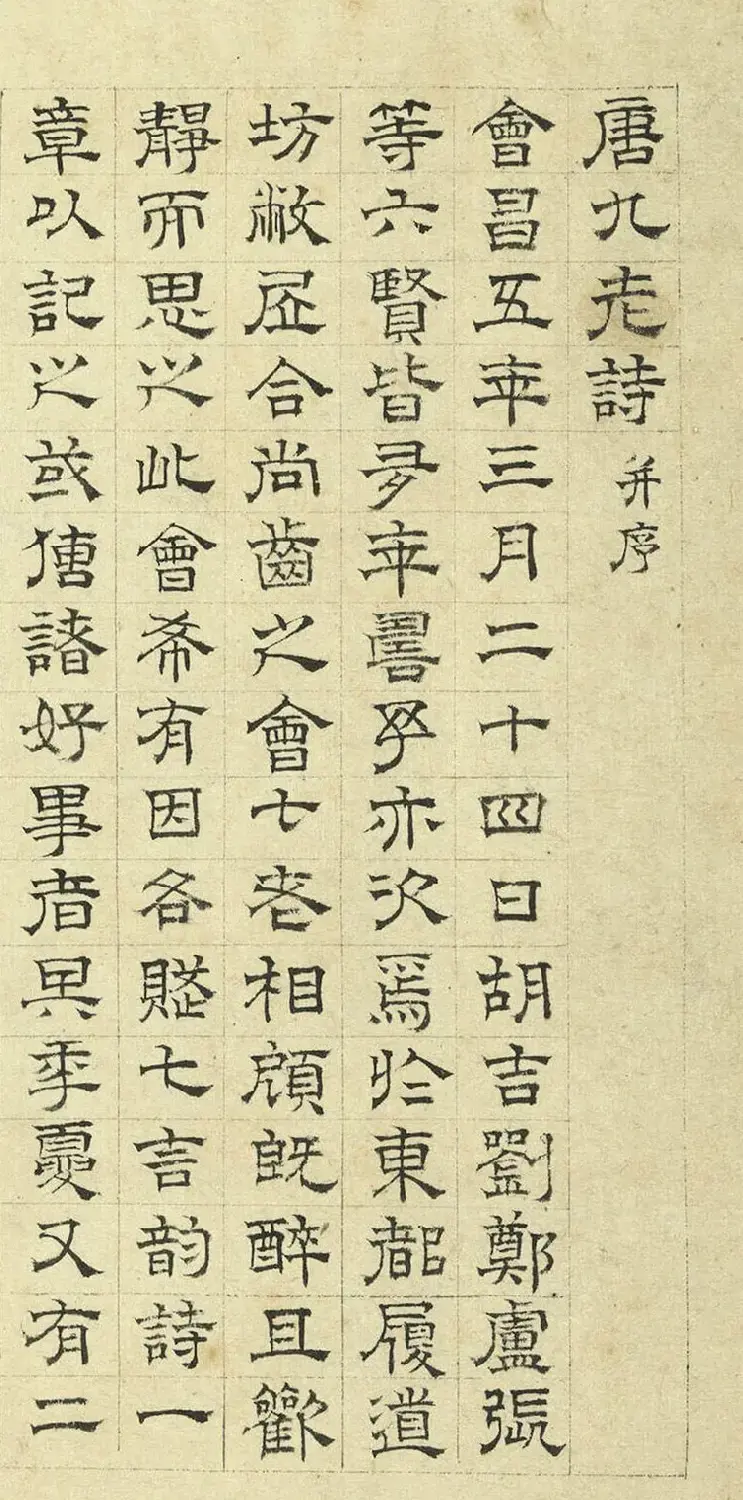 唐九老詩并序
會昌五年三月二十四日胡吉劉鄭盧張
等六賢皆多年壽予亦次焉於東都履道
坊敝居合尚齒之會七老相顧既醉且歡
靜而思之此會希有因各賦七言韵詩一
章以記之或傳諸好事者其年夏又有二